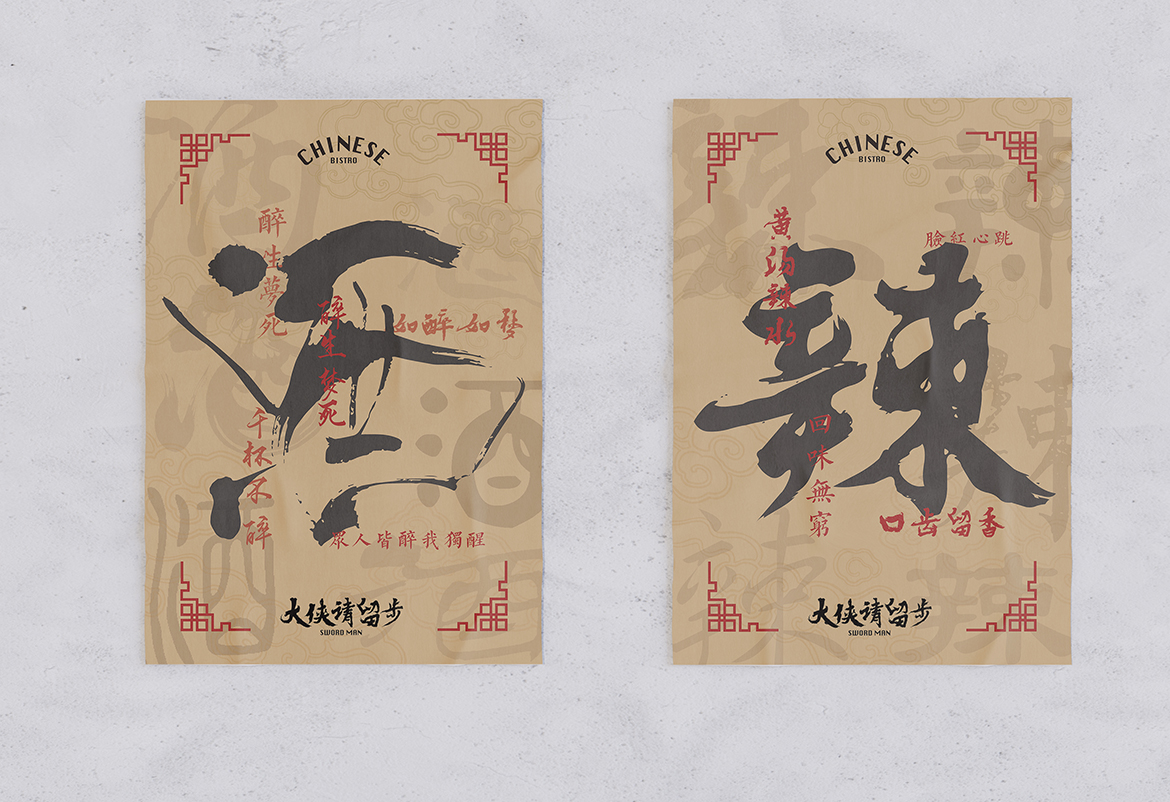 CHINESE
BISTRO
酒
醉生夢死
醉生梦死
如醉如梦
千杯不醉
眾人皆醉我獨醒
酒
酒
大侠请留步
SWORD MAN
CHINESE
BISTRO
辣
黄汤辣水
臉紅心跳
回味無窮
口齿留香
大侠请留步
SWORD MAN